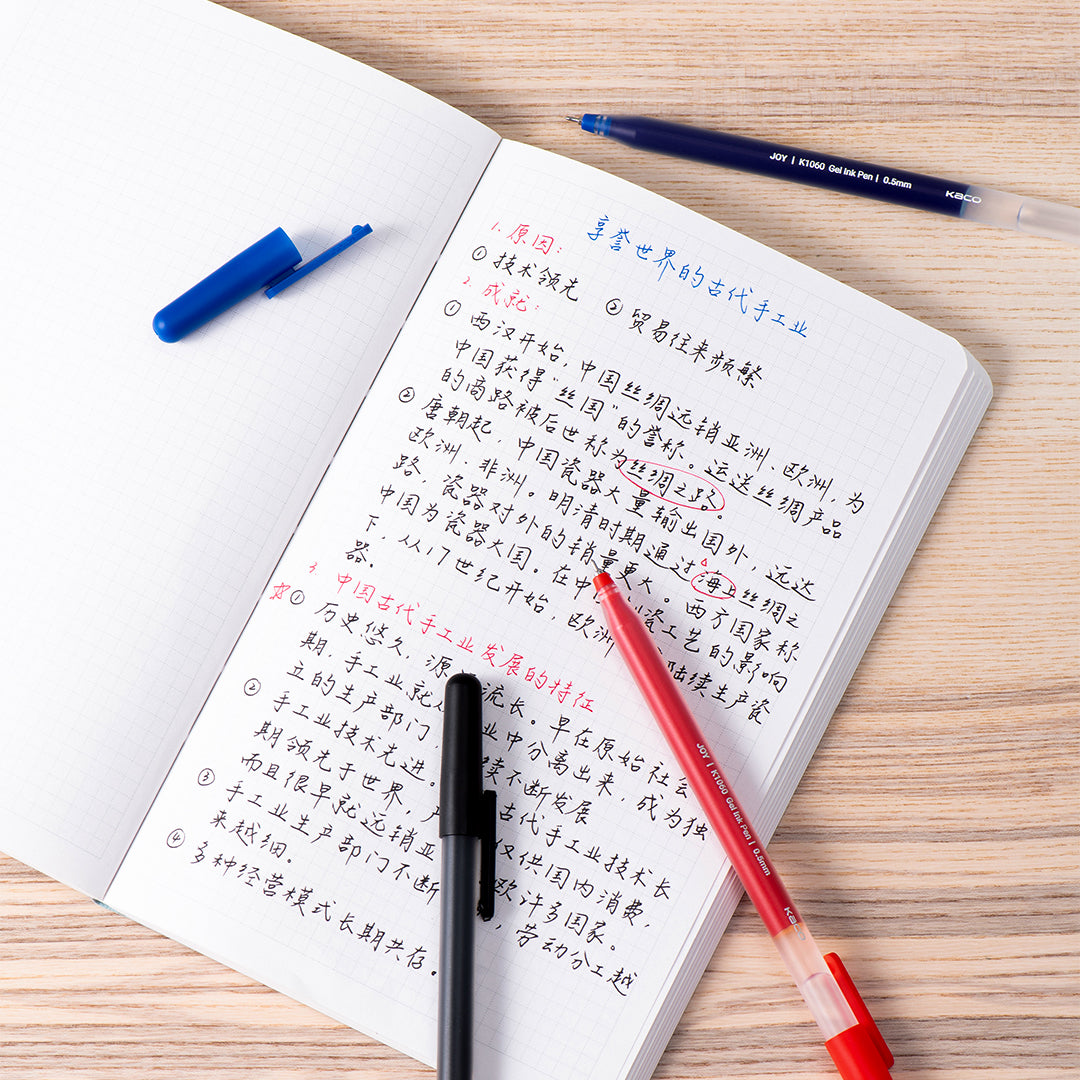 享誉世界的古代手工业
1. 原因:
① 技术领先 ② 贸易往来频繁
2. 成就:
① 西汉开始,中国丝绸远销亚洲、欧洲,为
中国获得“丝国”的誉称。运送丝绸产品
的商路被后世称为丝绸之路。
② 唐朝起,中国瓷器大量输出国外,远达
欧洲、非洲。明清时期通过海上丝绸之
路,瓷器对外的销量更大。西方国家称
中国为瓷器大国。在中 瓷工艺的影响
下,从17世纪开始,欧洲 陆续生产瓷
器.
3. 中国古代手工业发展的特征
① 历史悠久,源 流长。早在原始社会
期,手工业就从 业中分离出来,成为独
立的生产部门, 续不断发展
② 手工业技术先进。 古代手工业技术长
期领先于世界, 仅供国内消费,
而且很早就远销亚 欧许多国家。
③ 手工业生产部门不断 ,劳动分工越
来越细.
④ 多种经营模式长期共存。
JOY | K1060 Gel Ink Pen | 0.5mm KACO
JOY | K1060 Gel Ink Pen | 0.5mm KACO